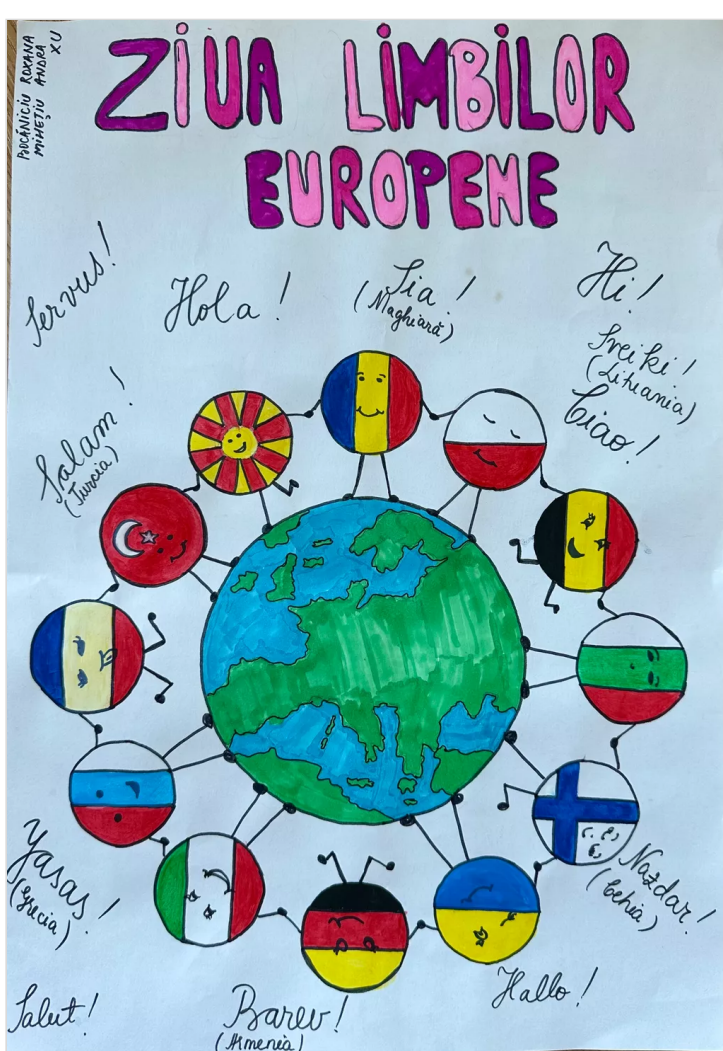 ROXANA
ANDRA
XU
ZIUA LIMBILOR
EUROPENE
Servus!
Hola!
Sia!
(Maghiară)
Hi!
Sveiki!
(Lituania)
Ciao!
Salam!
(Turcia)
Yasas!
(Grecia)
Nazdar!
(Cehia)
Salut!
Barev!
(Armenia)
Hallo!